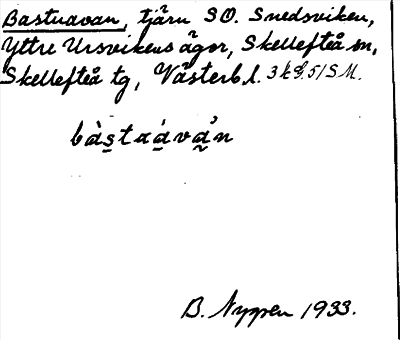 Bastuavan, tjärn SO. Snedsviken,
Yttre Ursvikens ägor, Skellefteå sn,
Skellefteå tg, Västerb.l. 3 k 51 SM.
bàs̱taávạ̊n
B. Nygren 1933.